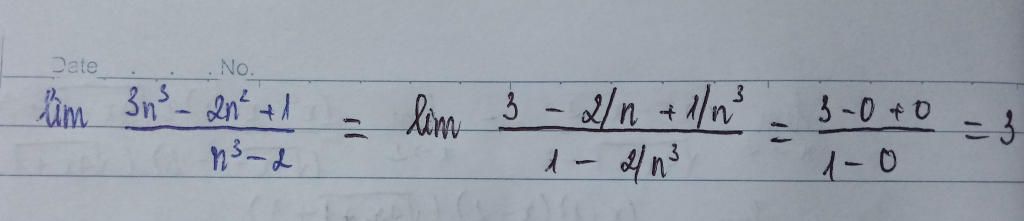 Date . . . No.
lim (3n³ - 2n² + 1)/(n³ - 2) = lim (3 - 2/n + 1/n³)/(1 - 2/n³) = (3 - 0 + 0)/(1 - 0) = 3